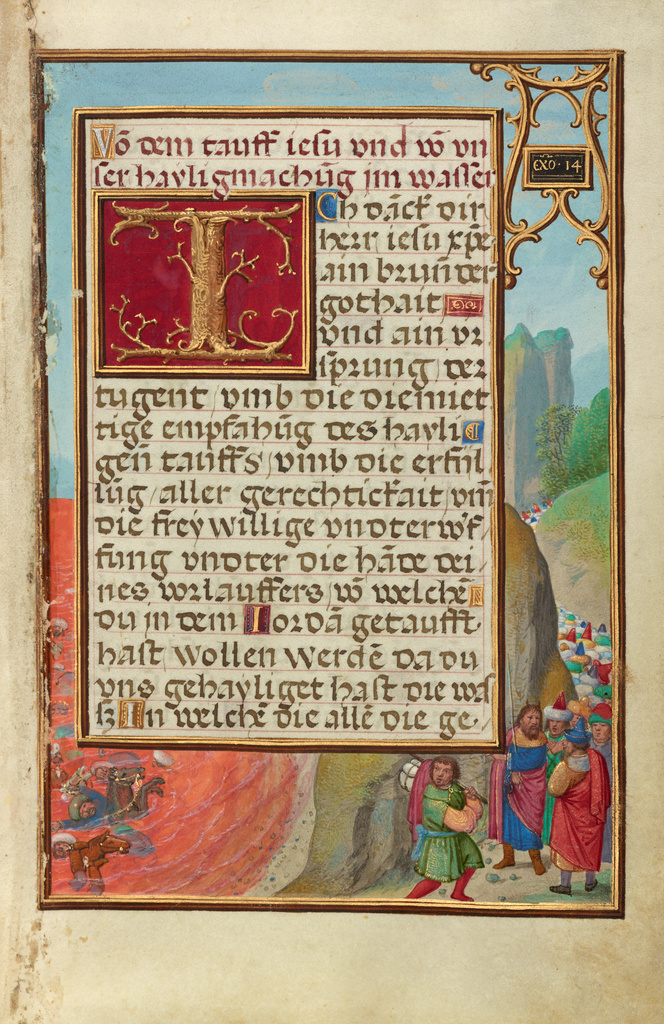 Vō dem tauff iesu vnd vō vn
ser hayligmachūg jm wasser
EXO · 14
Ich dāck dir
herr iesu xp̄e
ain brunn der
gothait
vnd ain vr
sprung der
tugent / vmb die diemiet
tige empfahūg des hayli
gen tauffs / vmb die erfül
lūg / aller gerechtickait vm̄
die frey willige vndterw̄f
fung vndter die hāde dei
nes vorlauffers / vō welchē
du in dem Iordā getaufft
hast wollen werdē da du
vns gehayliget hast die was
sz In welchē die allē die ge